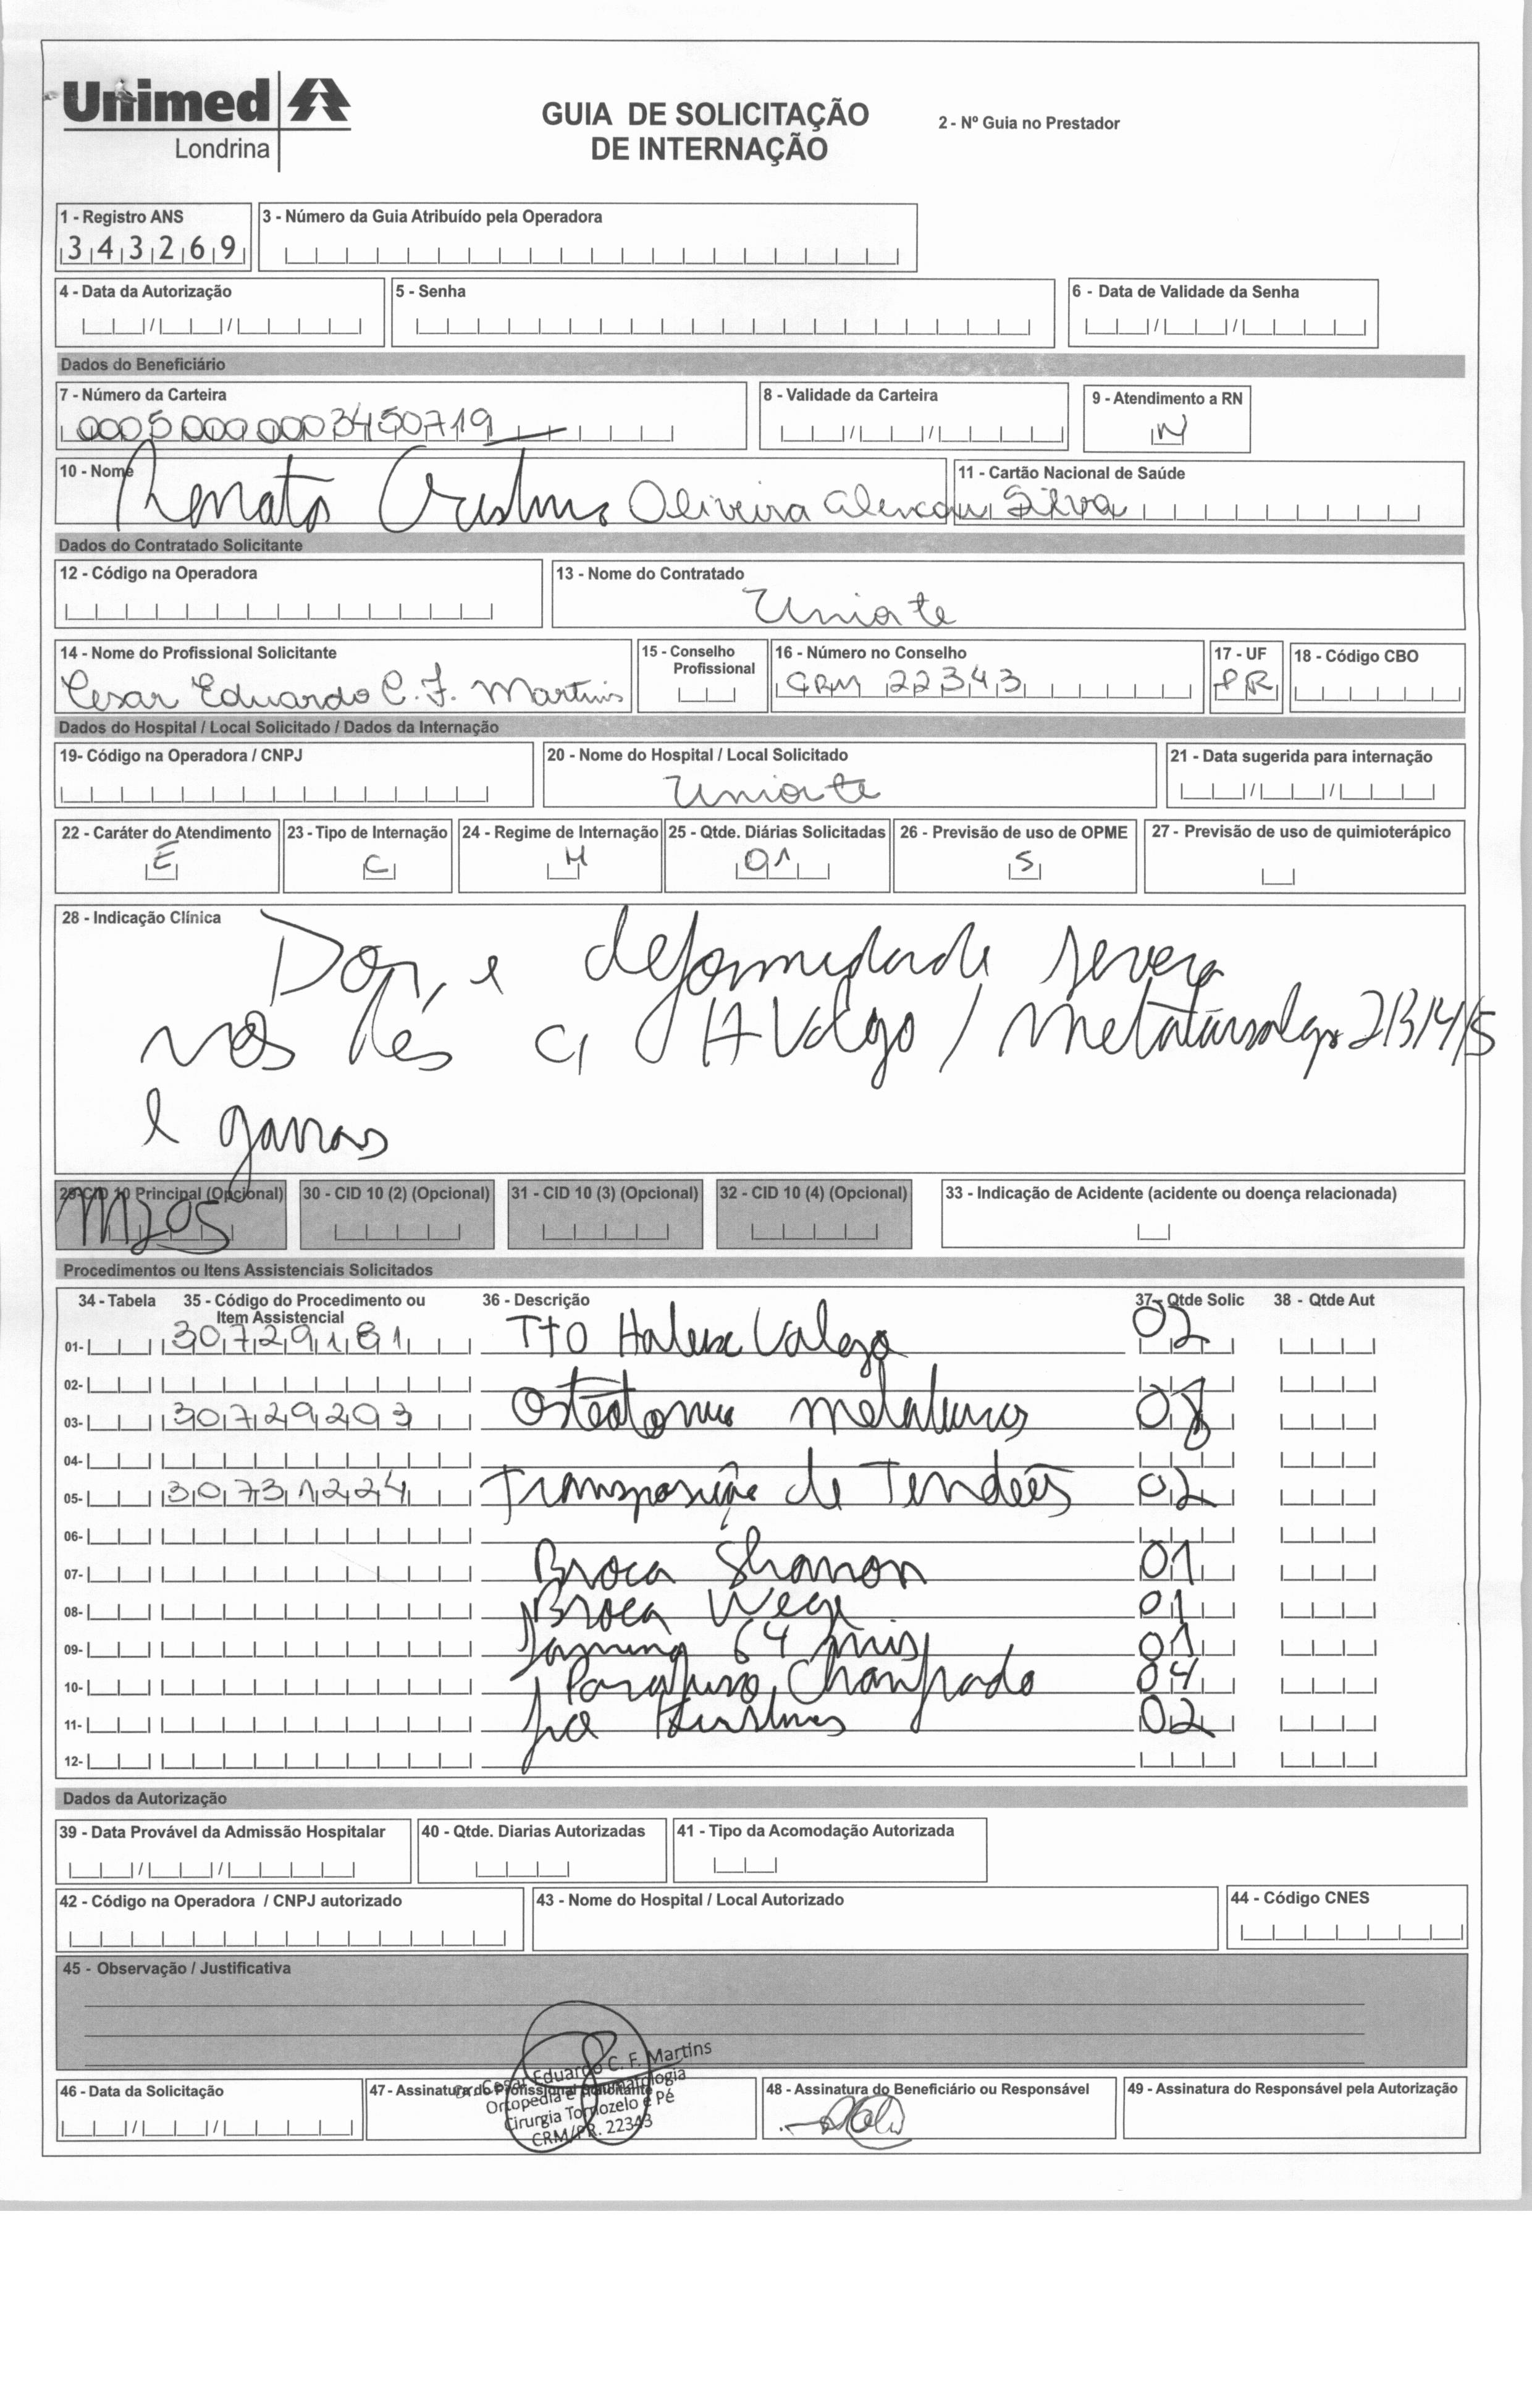 Unimed
Londrina
GUIA DE SOLICITAÇÃO
DE INTERNAÇÃO
2 - Nº Guia no Prestador
1 - Registro ANS
343269
3 - Número da Guia Atribuído pela Operadora
4 - Data da Autorização
5 - Senha
6 - Data de Validade da Senha
Dados do Beneficiário
7 - Número da Carteira
00050000003450719
8 - Validade da Carteira
9 - Atendimento a RN
N
10 - Nome
Renato Oliveira Alencar Silva
11 - Cartão Nacional de Saúde
Dados do Contratado Solicitante
12 - Código na Operadora
13 - Nome do Contratado
Uniorte
14 - Nome do Profissional Solicitante
Cesar Eduardo C. F. Martins
15 - Conselho Profissional
16 - Número no Conselho
CRM 22343
17 - UF
PR
18 - Código CBO
Dados do Hospital / Local Solicitado / Dados da Internação
19- Código na Operadora / CNPJ
20 - Nome do Hospital / Local Solicitado
Uniorte
21 - Data sugerida para internação
22 - Caráter do Atendimento
E
23 - Tipo de Internação
C
24 - Regime de Internação
H
25 - Qtde. Diárias Solicitadas
01
26 - Previsão de uso de OPME
S
27 - Previsão de uso de quimioterápico
28 - Indicação Clínica
Dor, e deformidade severa
nos Pés c/ H Valgo / 2/3/4/5
e garras
29 - CID 10 Principal (Opcional)
M205
30 - CID 10 (2) (Opcional)
31 - CID 10 (3) (Opcional)
32 - CID 10 (4) (Opcional)
33 - Indicação de Acidente (acidente ou doença relacionada)
Procedimentos ou Itens Assistenciais Solicitados
34 - Tabela 35 - Código do Procedimento ou Item Assistencial 36 - Descrição 37 - Qtde Solic 38 - Qtde Aut
01- 30729181 TTO Halux Valgo 02
02-
03- 30729203 Osteotomia
04-
05- 30731224 Transposição de Tendões 02
06-
07- Broca Shanon 01
08- Broca 01
09- 64 01
10- Parafuso Chanfrado 04
11- fio 02
12-
Dados da Autorização
39 - Data Provável da Admissão Hospitalar
40 - Qtde. Diarias Autorizadas
41 - Tipo da Acomodação Autorizada
42 - Código na Operadora / CNPJ autorizado
43 - Nome do Hospital / Local Autorizado
44 - Código CNES
45 - Observação / Justificativa
46 - Data da Solicitação
47 - Assinatura do Profissional Solicitante
Dr. Cesar Eduardo C. F. Martins
Ortopedia e Traumatologia
Cirurgia Tornozelo e Pé
CRM/PR. 22343
48 - Assinatura do Beneficiário ou Responsável
49 - Assinatura do Responsável pela Autorização